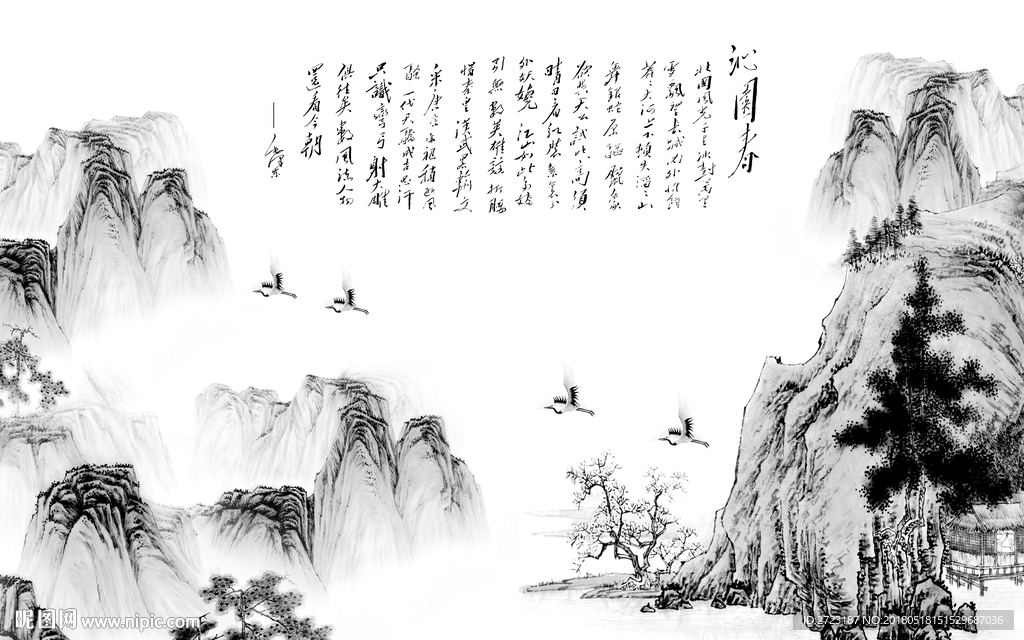 沁園春
北國風光千里冰封萬里
雪飄望長城內外惟餘
莽莽大河上下頓失滔滔山
舞銀蛇原驅臘象
欲與天公試比高須
晴日看紅裝素裹分
外妖嬈江山如此多嬌
引無數英雄競折腰
惜秦皇漢武略輸文
采唐宗宋祖稍遜風
騷一代天驕成吉思汗
只識彎弓射大雕
俱往矣數風流人物
還看今朝
昵图网 www.nipic.com
ID:2723187 NO:20180518151529687036